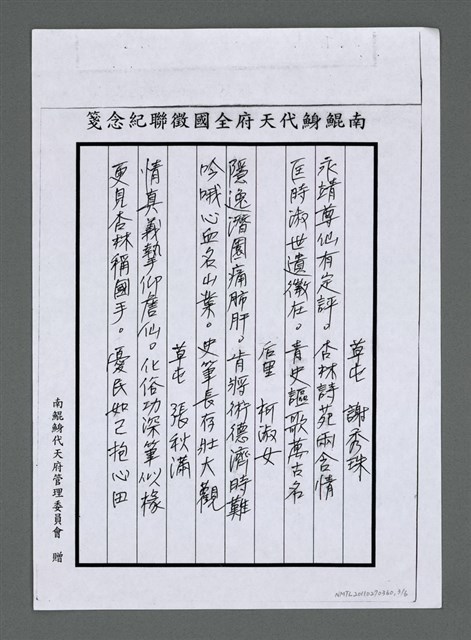 南鯤鯓代天府全國徵聯紀念箋
草屯 謝秀珠
永靖尊仙有定評。杏林詩苑兩含情
匡時淑世遺徽在。青史謳歌萬古名
后里 柯淑女
隱逸潛園痛肺肝。肯將術德濟時難
吟哦心血名山業。史筆長存壯大觀
草屯 張秋滿
情真義摯仰詹仙。化俗功深筆似椽
更見杏林稱國手。憂民如己抱心田
南鯤鯓代天府管理委員會 贈
NMTL20190270360, 3/6